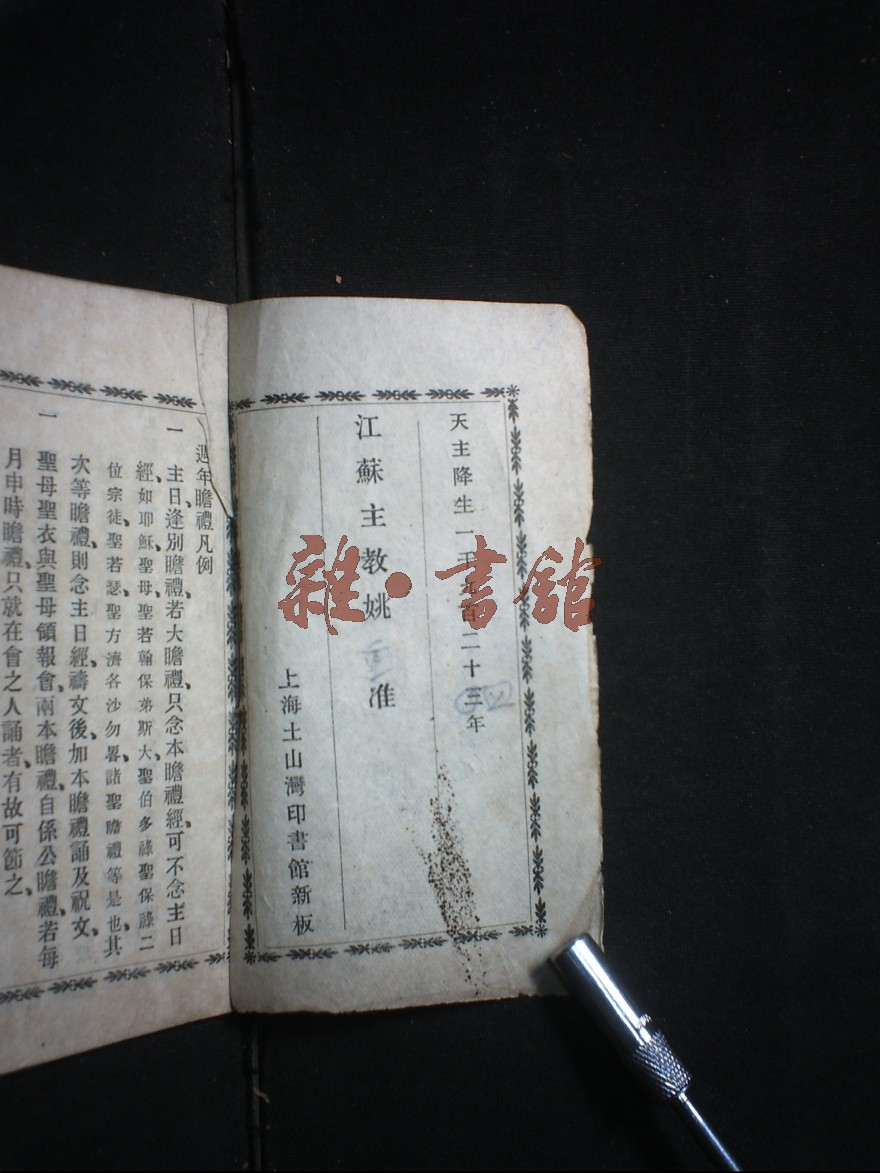 天主降生一千九百二十三年
江蘇主教姚 重 准
上海土山灣印書館新板
週年瞻禮凡例
一 主日、逢別瞻禮、若大瞻禮、只念本瞻禮經、可不念主日
經、如耶穌、聖母、聖若翰保弟斯大、聖伯多祿、聖保祿、二
位宗徒、聖若瑟、聖方濟各沙勿畧、諸聖瞻禮等是也、其
次等瞻禮、則念主日經、禱文後、加本瞻禮誦及祝文、
一 聖母聖衣、與聖母領報會、兩本瞻禮、自係公瞻禮、若每
月申時瞻禮、只就在會之人誦者、有故可節之、
雜·書館